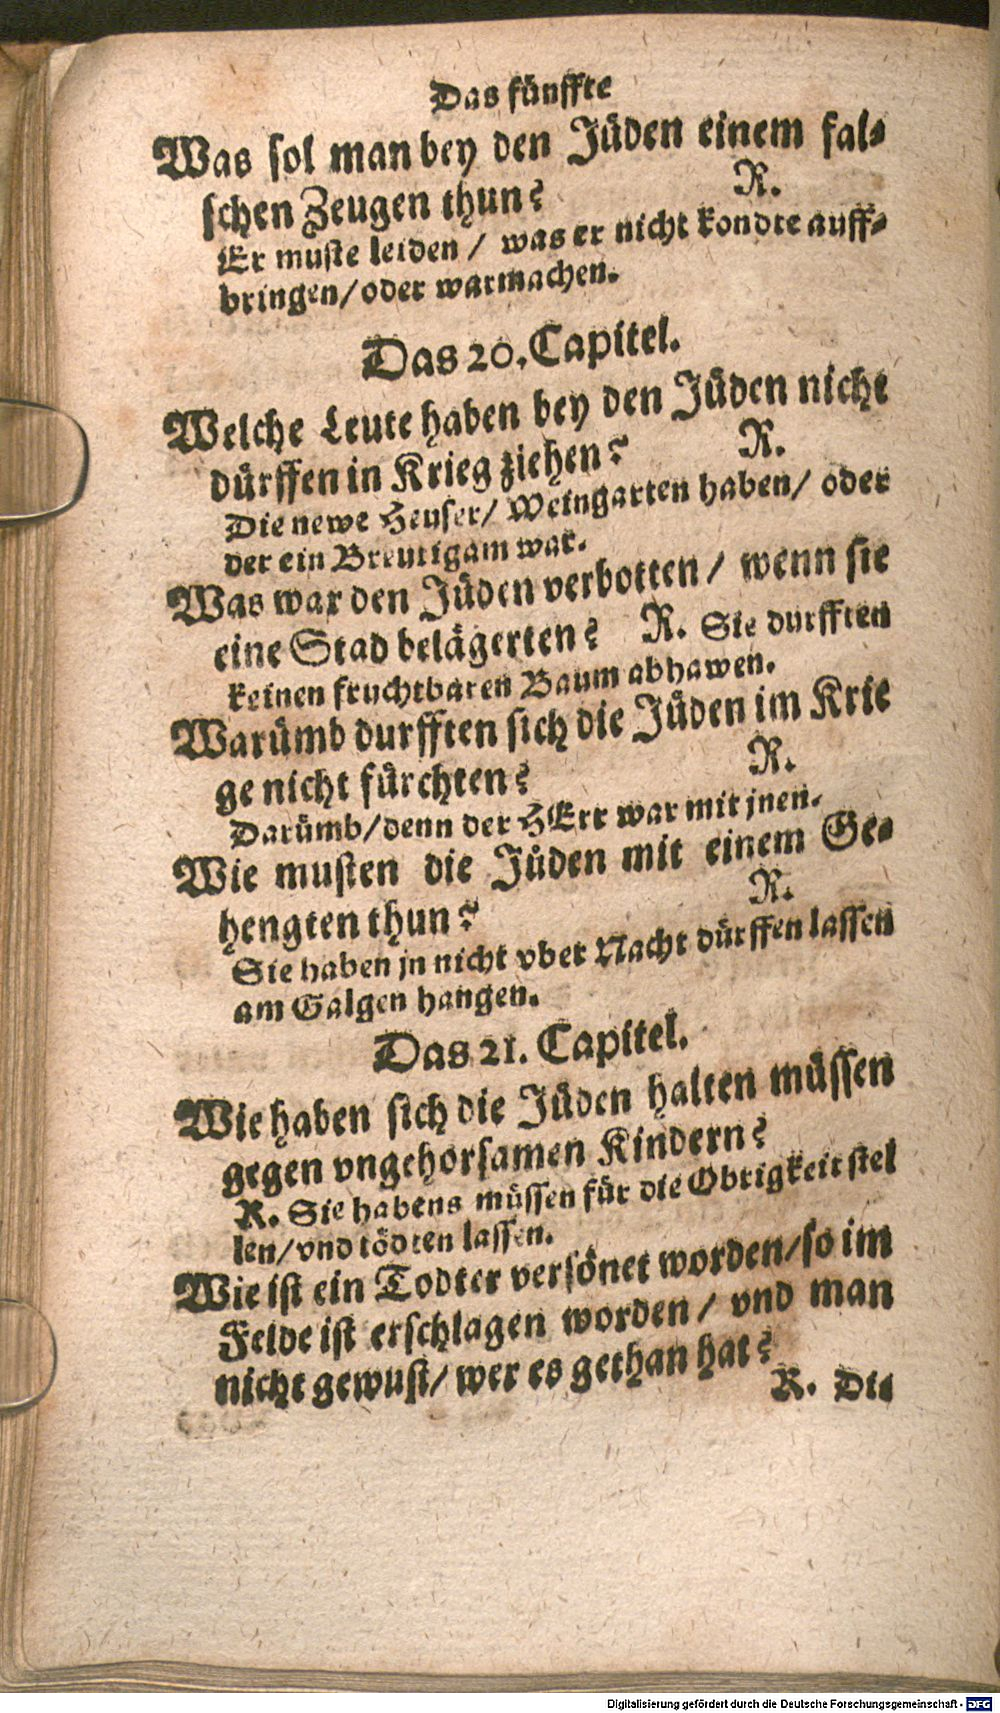 Das fünffte
Was sol man bey den Jüden einem fal-
schen Zeugen thun? R.
Er muste leiden / was er nicht kondte auff-
bringen/oder warmachen.
Das 20. Capitel.
Welche Leute haben bey den Jüden nicht
dürffen in Krieg ziehen? R.
Die newe Heuser/ Weingarten haben/ oder
der ein Breutigam war.
Was war den Jüden verbotten / wenn sie
eine Stad belägerten? R. Sie durfften
keinen fruchtbaren Baum abhawen.
Warümb durfften sich die Jüden im Krie
ge nicht fürchten? R.
Darümb/denn der HErr war mit jnen.
Wie musten die Jüden mit einem Ge-
hengten thun? R.
Sie haben jn nicht vber Nacht dürffen lassen
am Galgen hangen.
Das 21. Capitel.
Wie haben sich die Jüden halten müssen
gegen vngehorsamen Kindern?
R. Sie habens müssen für die Obrigkeit stel
len/vnd tödten lassen.
Wie ist ein Todter versönet worden/so im
Felde ist erschlagen worden / vnd man
nicht gewust/ wer es gethan hat?
R. Die
Digitalisierung gefördert durch die Deutsche Forschungsgemeinschaft - DFG